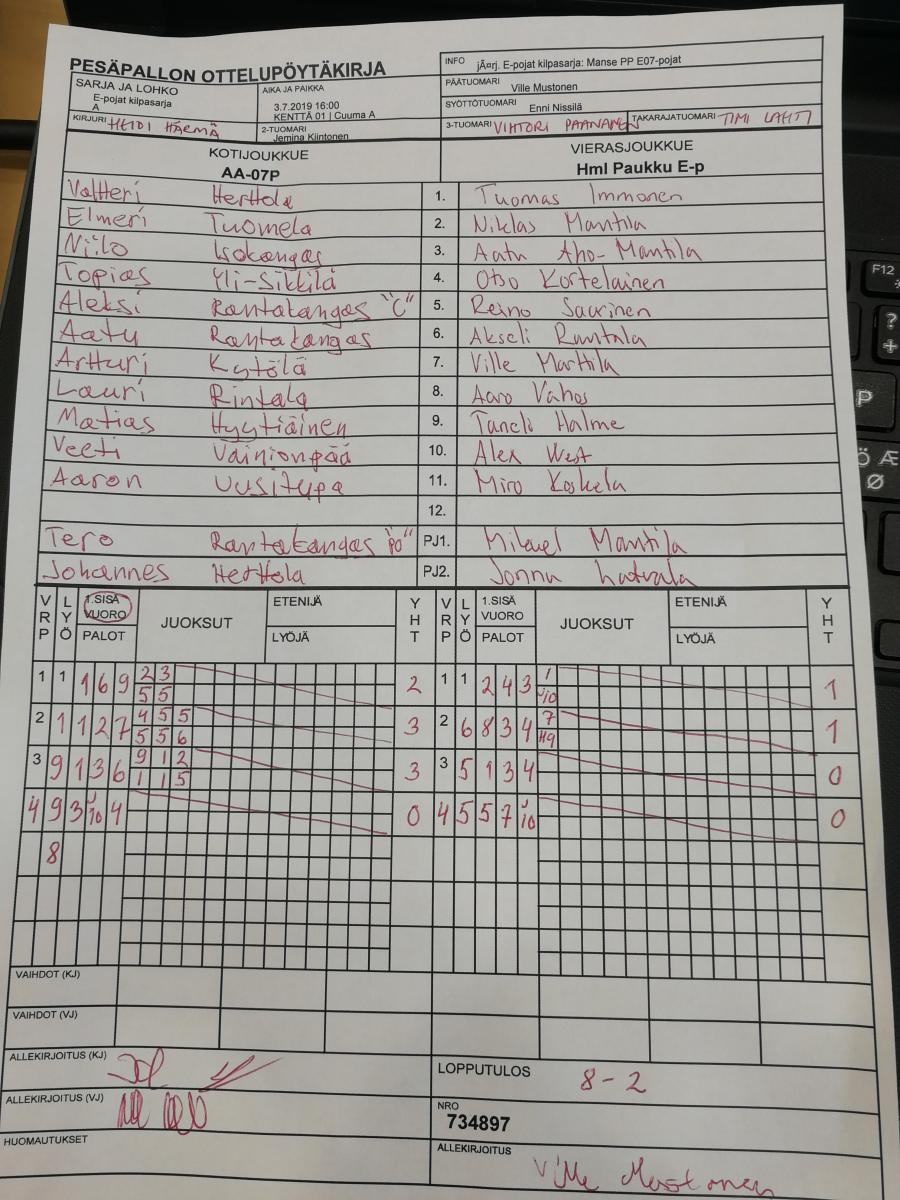 PESÄPALLON OTTELUPÖYTÄKIRJA
INFO jÃ¤rj. E-pojat kilpasarja: Manse PP E07-pojat
SARJA JA LOHKO
E-pojat kilpasarja
A
AIKA JA PAIKKA
3.7.2019 16:00
KENTTÄ 01 | Cuuma A
PÄÄTUOMARI Ville Mustonen
SYÖTTÖTUOMARI Enni Nissilä
KIRJURI HEIDI HÄRMÄ
2-TUOMARI Jemina Kiintonen
3-TUOMARI VIHTORI PAANANEN TAKARAJATUOMARI TIMI LAHTI
KOTIJOUKKUE VIERASJOUKKUE
AA-07P Hml Paukku E-p
Valtteri Herttola 1. Tuomas Immonen
Elmeri Tuomela 2. Niklas Mantila
Niilo Isokangas 3. Aatu Aho-Mantila
Topias Yli-Sikkilä 4. Otso Kortelainen
Aleksi Rantakangas "C" 5. Reino Saurinen
Aatu Rantakangas 6. Akseli Runtala
Artturi Kytölä 7. Ville Marttila
Lauri Rintala 8. Aaro Vahos
Matias Hyytiäinen 9. Taneli Halme
Veeti Vainionpää 10. Alex West
Aaron Uusitupa 11. Miro Koskela
12.
Tero Rantakangas "PO" PJ1. Mikael Mantila
Johannes Herttola PJ2. Jonna Latvala
VRP LYÖ 1.SISÄ VUORO PALOT JUOKSUT ETENIJÄ LYÖJÄ YHT VRP LYÖ 1.SISÄ VUORO PALOT JUOKSUT ETENIJÄ LYÖJÄ YHT
1 1 1 6 9 2 3 2 1 1 2 4 3 1 1
5 5 J10
2 1 1 2 7 4 5 5 3 2 6 8 3 4 7 1
5 5 6 H9
3 9 1 3 6 9 1 2 3 3 5 1 3 4 0
1 1 5
4 9 3 J10 4 0 4 5 5 7 J10 0
8
VAIHDOT (KJ)
VAIHDOT (VJ)
ALLEKIRJOITUS (KJ)
LOPPUTULOS 8-2
ALLEKIRJOITUS (VJ)
NRO
734897
HUOMAUTUKSET
ALLEKIRJOITUS
Ville Mustonen
F12
P
Ö Æ
Ø